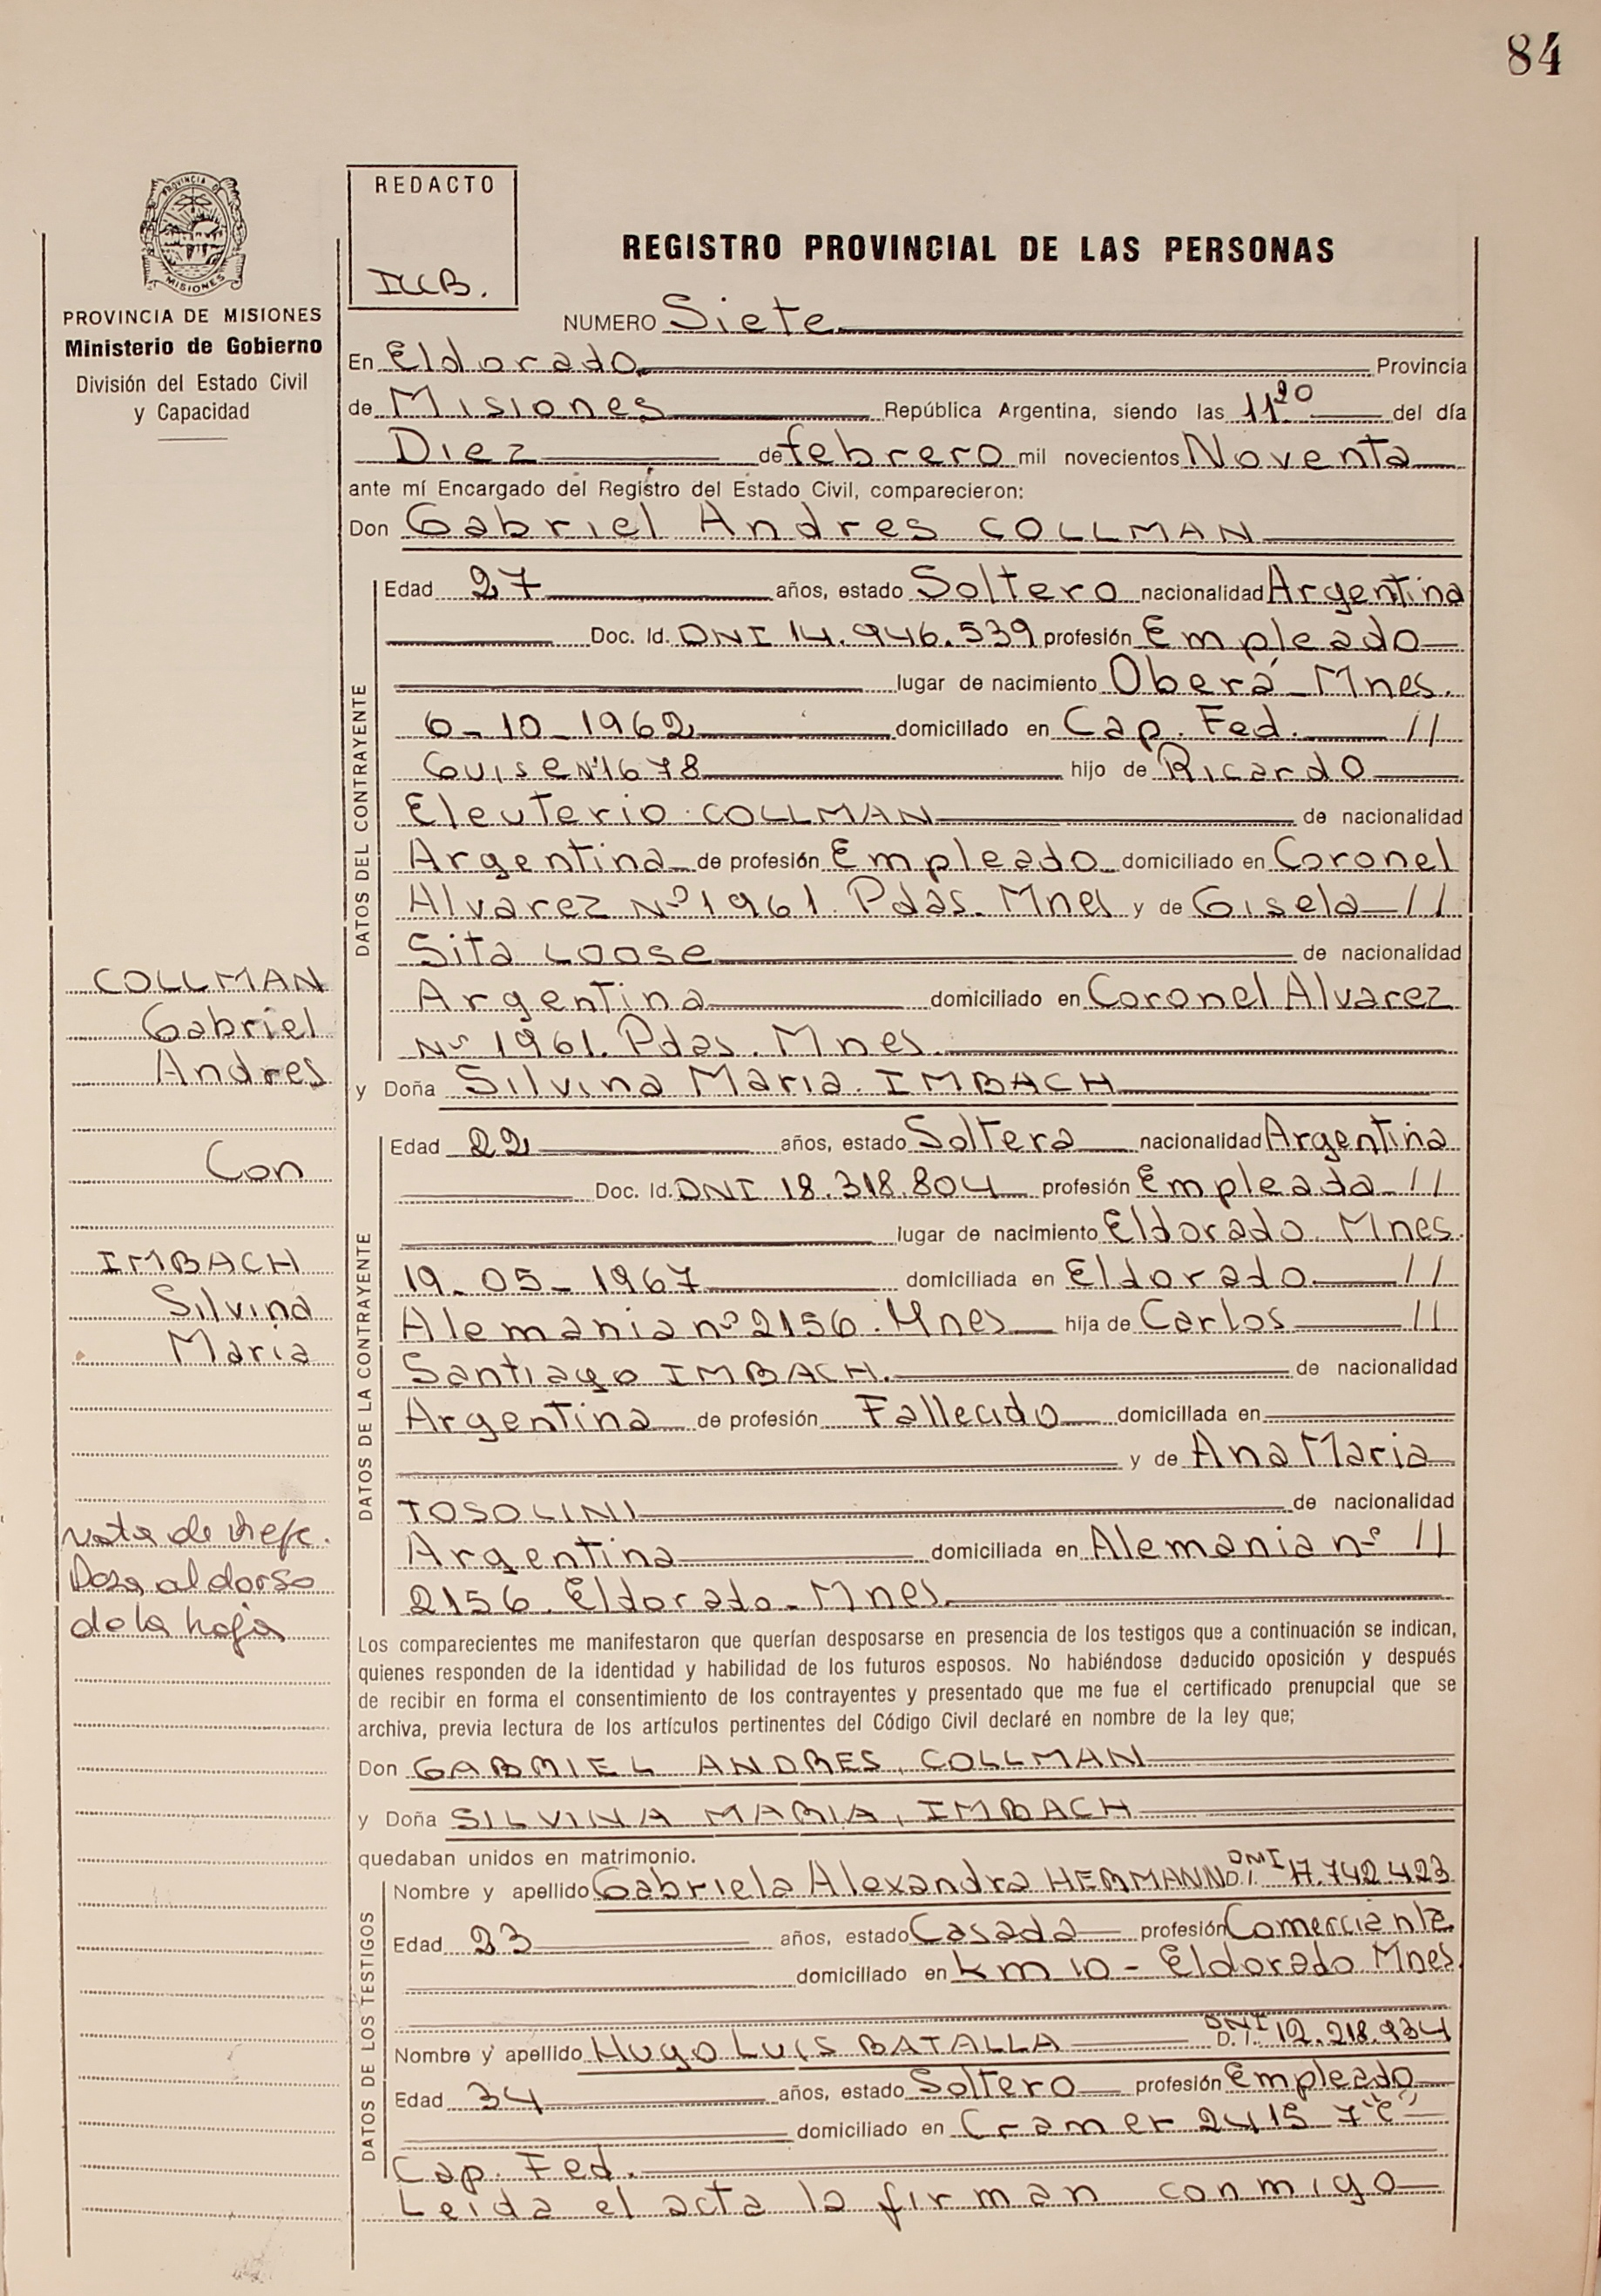 84
PROVINCIA DE
MISIONES
PROVINCIA DE MISIONES
Ministerio de Gobierno
División del Estado Civil
y Capacidad
REDACTO
REGISTRO PROVINCIAL DE LAS PERSONAS
NUMERO Siete
En Eldorado Provincia
de Misiones República Argentina, siendo las 11 20 del día
Diez de febrero mil novecientos Noventa
ante mí Encargado del Registro del Estado Civil, comparecieron:
Don Gabriel Andres COLLMAN
DATOS DEL CONTRAYENTE
Edad 27 años, estado Soltero nacionalidad Argentina
Doc. Id. DNI 14.946.539 profesión Empleado
lugar de nacimiento Oberá - Mnes.
6-10-1962 domiciliado en Cap. Fed. //
Guise Nº1678 hijo de Ricardo
Eleuterio COLLMAN de nacionalidad
Argentina de profesión Empleado domiciliado en Coronel
Alvarez Nº1961. Pdas. Mnes y de Gisela //
Sita LOOSE de nacionalidad
Argentina domiciliado en Coronel Alvarez
Nº 1961. Pdas. Mnes.
y Doña Silvina Maria IMBACH
DATOS DE LA CONTRAYENTE
Edad 22 años, estado Soltera nacionalidad Argentina
Doc. Id. DNI 18.318.804 profesión Empleada //
lugar de nacimiento Eldorado. Mnes.
19-05-1967 domiciliada en Eldorado //
Alemania nº2156. Mnes hija de Carlos //
Santiago IMBACH. de nacionalidad
Argentina de profesión Fallecido domiciliada en
y de Ana Maria
TOSOLINI de nacionalidad
Argentina domiciliada en Alemania nº //
2156. Eldorado - Mnes.
Los comparecientes me manifestaron que querían desposarse en presencia de los testigos que a continuación se indican,
quienes responden de la identidad y habilidad de los futuros esposos. No habiéndose deducido oposición y después
de recibir en forma el consentimiento de los contrayentes y presentado que me fue el certificado prenupcial que se
archiva, previa lectura de los artículos pertinentes del Código Civil declaré en nombre de la ley que;
Don GABRIEL ANDRES, COLLMAN
y Doña SILVINA MARIA, IMBACH
quedaban unidos en matrimonio.
DATOS DE LOS TESTIGOS
Nombre y apellido Gabriela Alexandra HERMANN D.I. DNI 17.742.423
Edad 23 años, estado Casada profesión Comerciante
domiciliado en km 10 - Eldorado Mnes.
Nombre y apellido Hugo Luis BATALLA D.I. DNI 12.218.934
Edad 34 años, estado Soltero profesión Empleado
domiciliado en Cramer 2415 7º"C"
Cap. Fed.
Leida el acta la firman conmigo
COLLMAN
Gabriel
Andres
Con
IMBACH
Silvina
Maria
nota de
al dorso
de la hoja